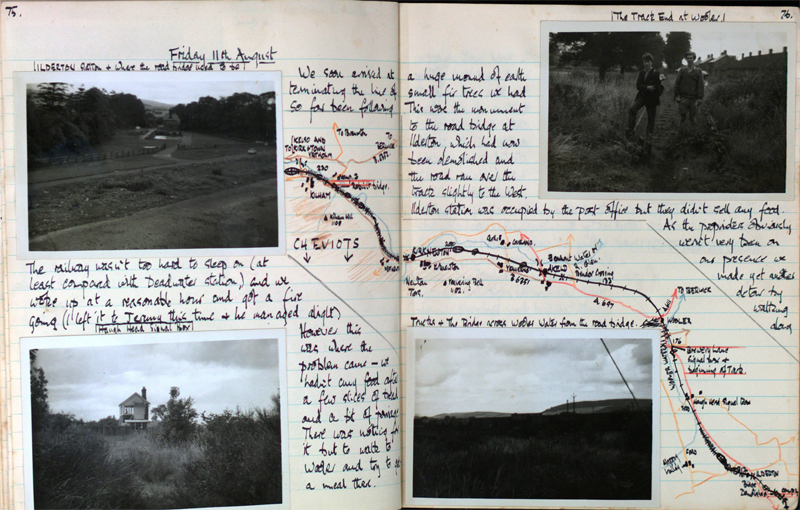 75.
Friday 11th August
ILDERTON station & where the road bridge used to be
We soon arrived at
terminating the line of
so far been following
The railway wasn't too hard to sleep on (at
least compared with Deadwater station) and we
woke up at a reasonable hour and got a fire
going (I left it to Jeremy this time & he managed alright)
Haugh Head Signal box
However this
was where the
problem came – we
hadn't any food after
a few slices of bread
and a bit of porridge.
There was nothing for
it but to walk to
Wooler and try to get
a meal there.
76.
The Track End at Wooler
a huge mound of earth
small fir trees we had
This was the monument
to the road bridge at
Ilderton, which had now
been demolished and
the road ran over the
track slightly to the West.
Ilderton station was occupied by the post office but they didn't sell any food.
As the proprietors obviously
weren't very keen on
our presence we
made yet another
detour by
walking
along
Track & The Bridge across Wooler Water from the road bridge.
KELSO AND
KIRK YETHOLM
TO
220
KILHAM
Kilham Hill
CHEVIOTS
KIRKNEWTON
200
AKELD
B.6351
A.697
TO BERWICK
WOOLER
176
Signal box &
beginning of Track
Haugh Head Signal Box
ILDERTON